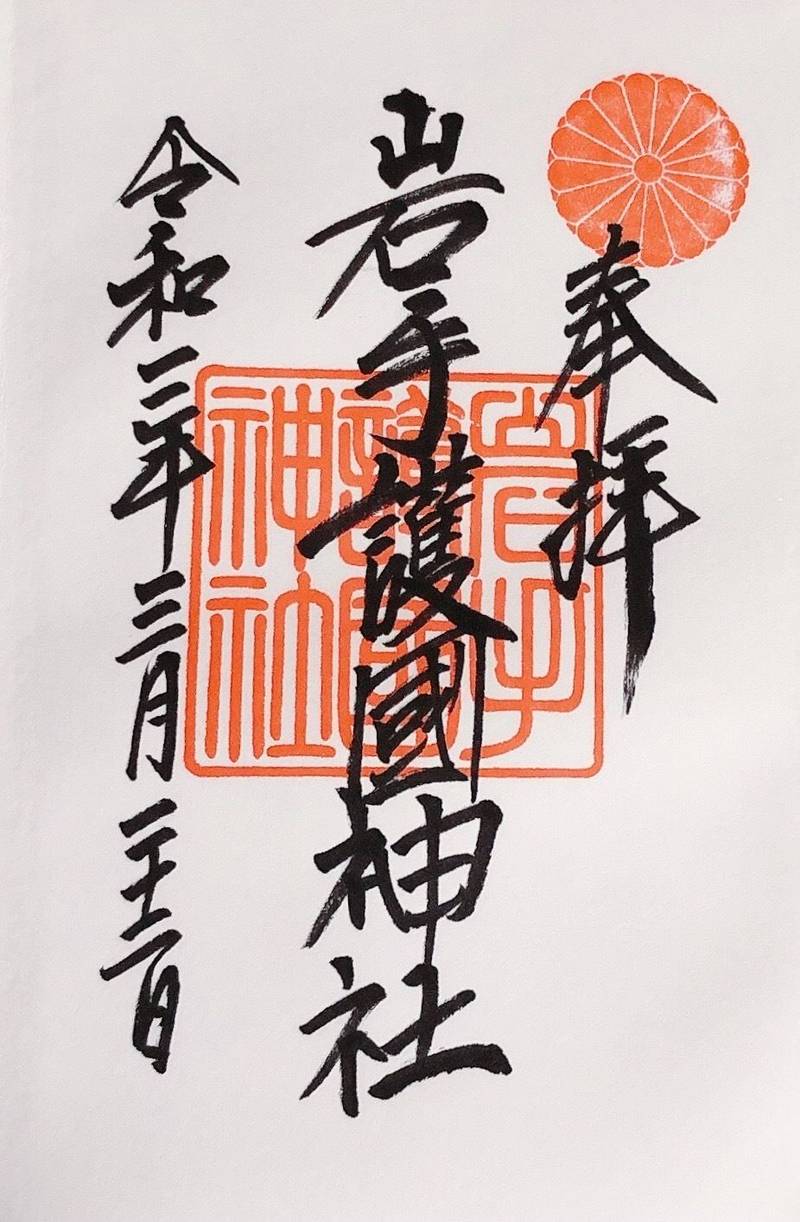 奉拝
岩手護國神社
令和二年三月二十二日
岩手
護國
神社